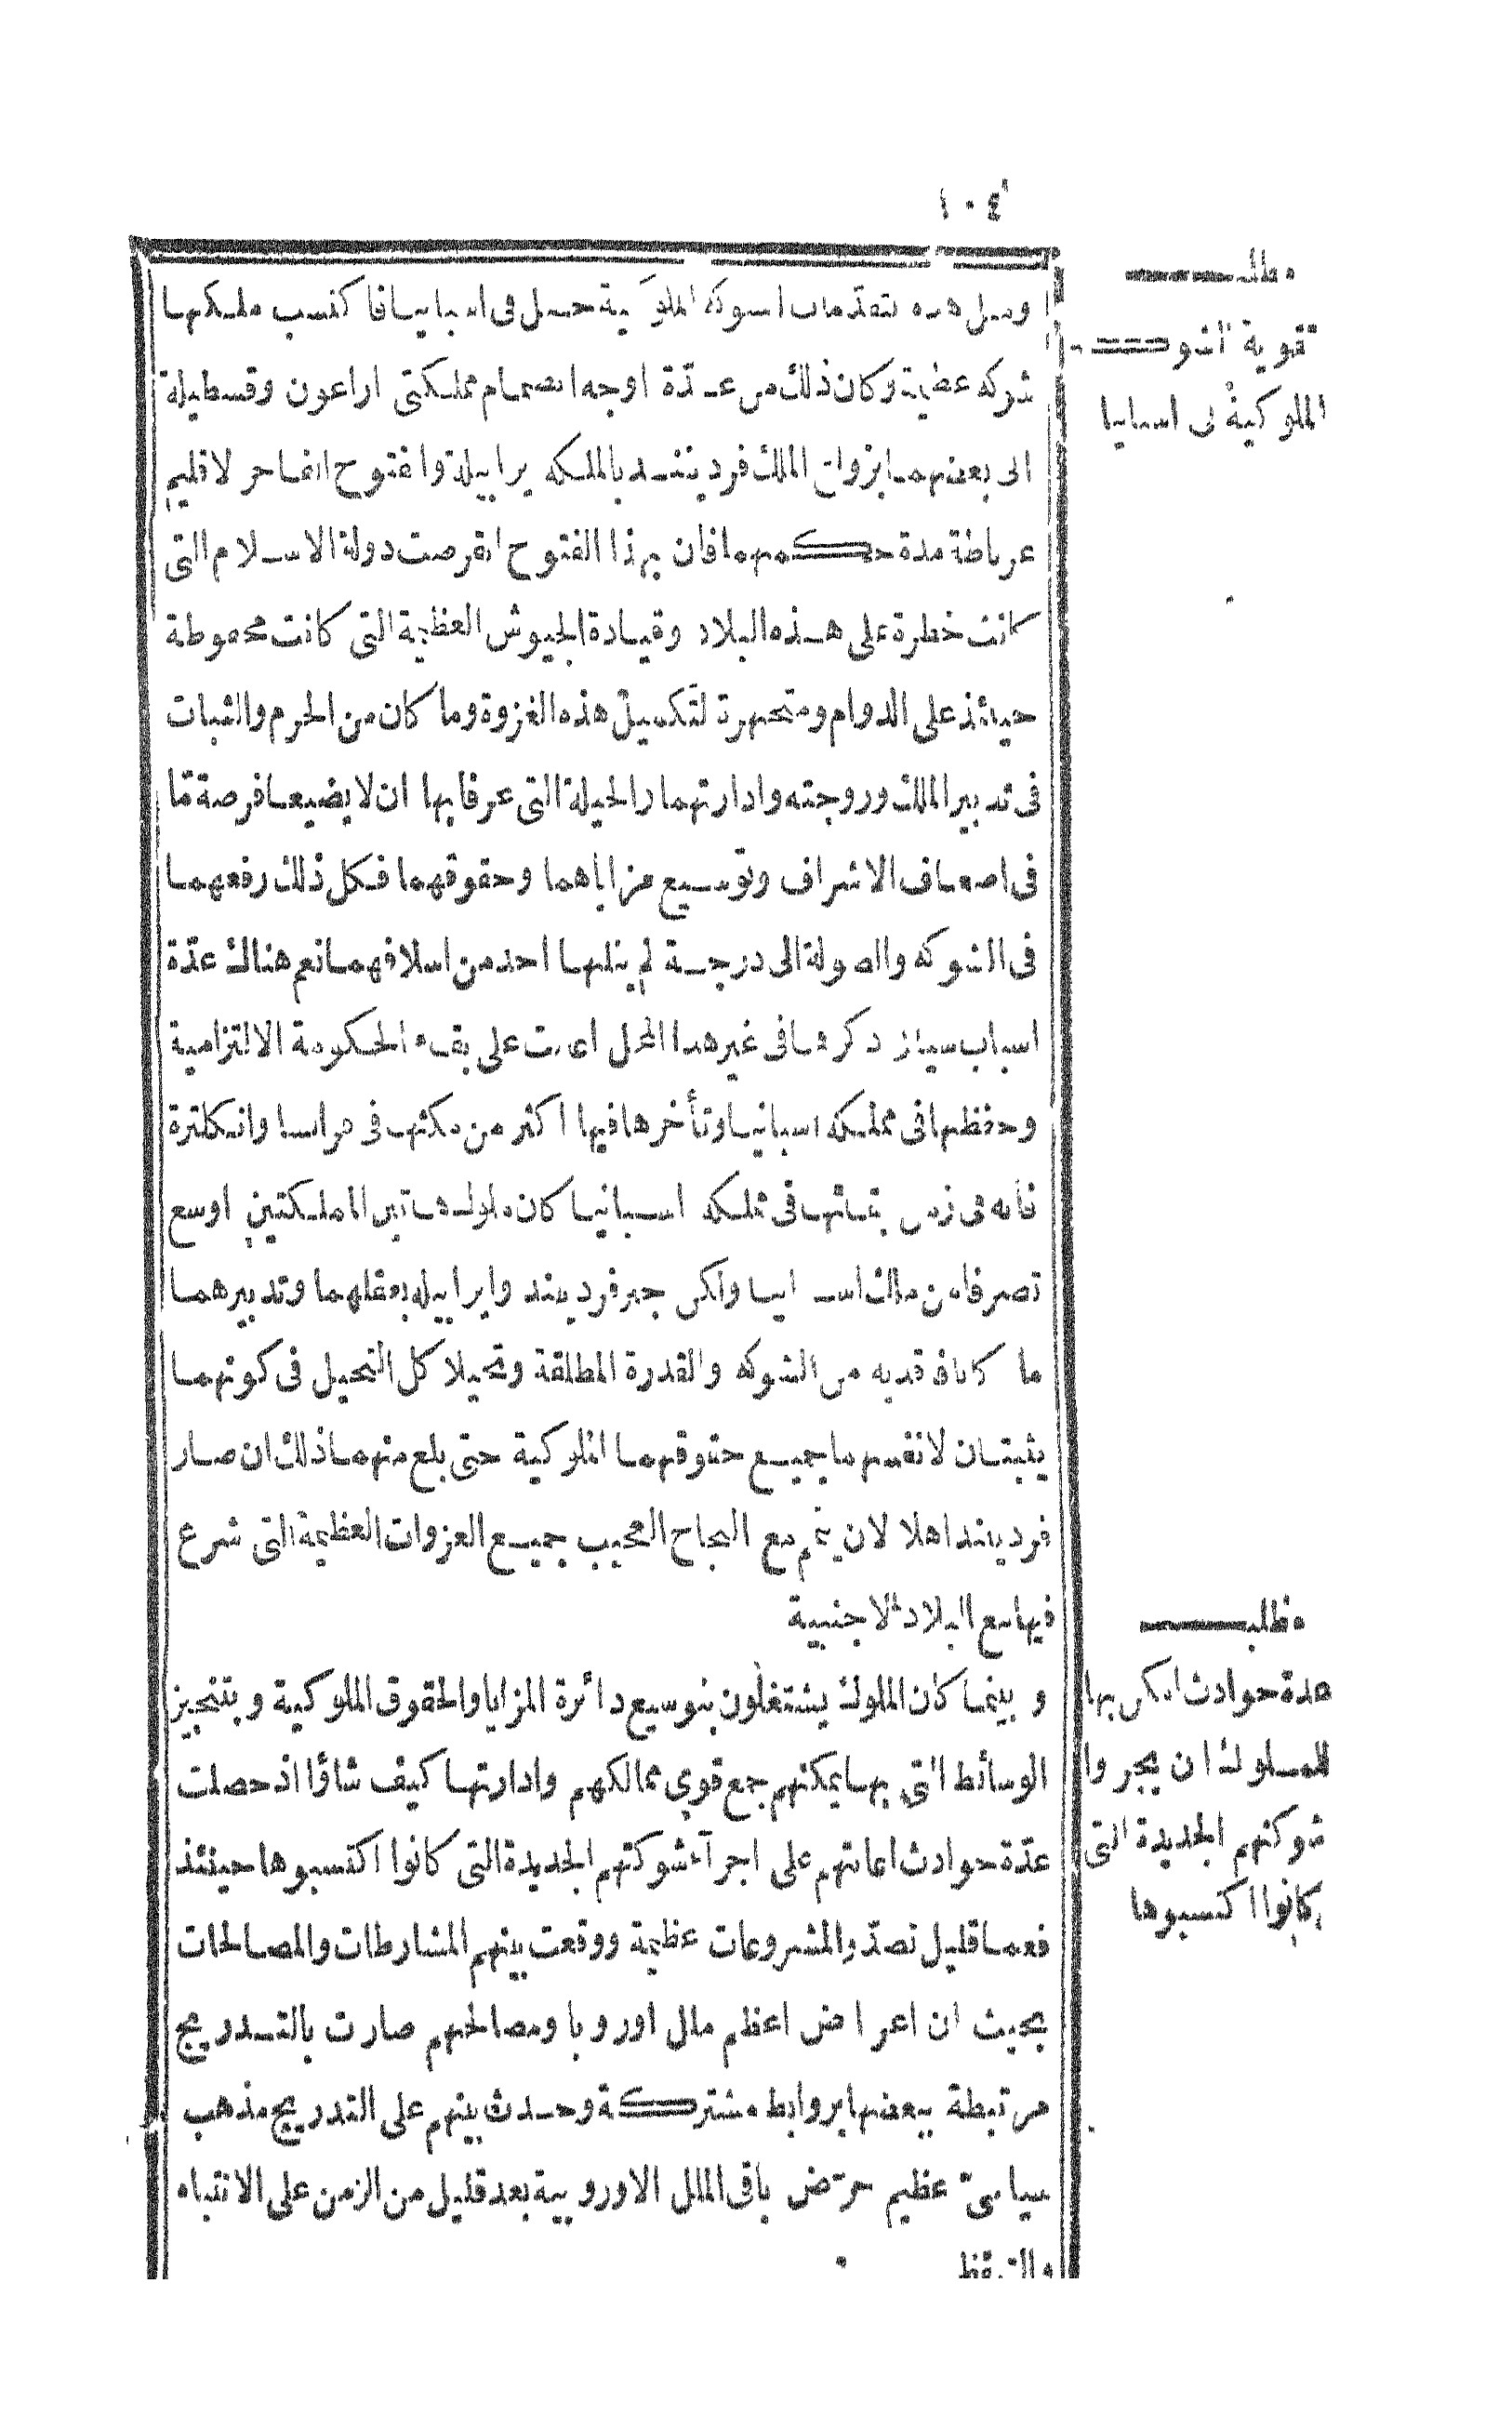 ١٠٤
مطلب
تقوية الشوكة
الملوكية فى اسبانيا
ومثل هذه تقدّمات الشوكة الملوكية حصل فى اسبانيا فاكتسب ملكها
شوكة عظيمة وكان ذلك من عدّة اوجه انضمام مملكتى اراغون وقسطيلة
الى بعضهما بزواج الملك فرديند بالملكة ايزابيلة والفتوح الفاخر لاقليم
غرناطة مدة حكمهما فان بهذا الفتوح انقرضت دولة الاسلام التى
كانت خطرة على هذه البلاد وقيادة الجيوش العظيمة التى كانت محفوظة
حينئذ على الدوام ومتجهزة لتكميل هذه الغزوة وما كان من الحزم والثبات
فى تدبير الملك وزوجته وادارتهما والحيلة التى عرفا بها ان لا يضيعا فرصة ما
فى اضعاف الاشراف وتوسيع مزاياهما وحقوقهما فكل ذلك رفعهما
فى الشوكة والصولة الى درجة لم ينلها احد من اسلافهما نعم هناك عدّة
اسباب سيأتى ذكرها فى غير هذا المحل اعانت على بقاء الحكومة الالتزامية
وحفظها فى مملكة اسبانيا وتأخرها فيها اكثر من مكثها فى فرانسا وانكلترة
فانه فى زمن بقائها فى مملكة اسبانيا كان ملوك هاتين المملكتين اوسع
تصرفا من ملك اسبانيا ولكن جبر فرديند وايزابيلة بعقلهما وتدبيرهما
ما كانا فاقديه من الشوكة والقدرة المطلقة وتحيلا كل التحيل فى كونهما
يثبتان لانفسهما جميع حقوقهما الملوكية حتى بلغ منهما ذلك ان صار
فرديند اهلا لان يتم مع النجاح العجيب جميع الغزوات العظيمة التى شرع
فيها مع البلاد الاجنبية
مطلب
عدة حوادث امكن بها
للملوك ان يجروا
شوكتهم الجديدة التى
كانوا اكتسبوها
وبينما كان الملوك يشتغلون بتوسيع دائرة المزايا والحقوق الملوكية وبتنجيز
الوسائط التى بها يمكنهم جمع قوى ممالكهم وادارتها كيف شاؤا اذ حصلت
عدّة حوادث اعانتهم على اجرآء شوكتهم الجديدة التى كانوا اكتسبوها حينئذ
فعما قليل تصدّوا لمشروعات عظيمة ووقعت بينهم المشارطات والمصالحات
بحيث ان اغراض اعظم ملل اوروبا ومصالحهم صارت بالتدريج
مرتبطة ببعضها بروابط مشتركة وحدث بينهم على التدريج مذهب
سياسىّ عظيم حرّض باقى الملل الاوروبية بعد قليل من الزمن على الانتباه
والتيقظ